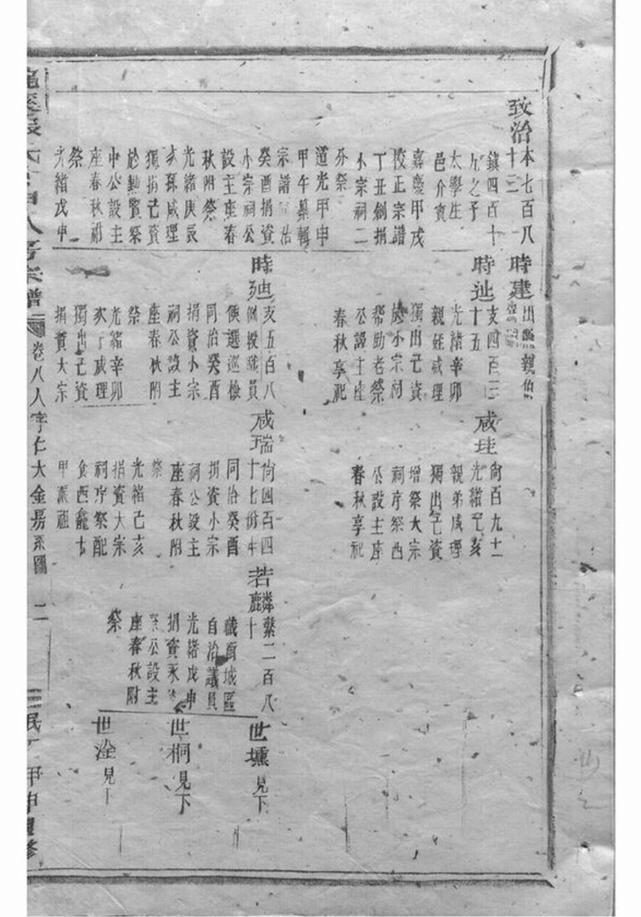 致治
本七百八
十三
鎮四百十
九之子
太學生
邑介賓
嘉慶甲戌
校正宗譜
丁丑創捐
小宗祠二
道光甲申
甲午纂輯
宗譜
癸酉捐資
小宗祠公
設主座春
秋附祭
光緒庚辰
孫咸理
獨捐己資
中公設主
座春秋祔
祭
光緒戊申
時建
出繼親伯
時迆
支四百三
十五
光緒辛卯
親姪咸理
獨出己資
小宗祠
幫助老祭
公設主座
春秋享祀
咸珪
尙百九十一
光緒己亥
親弟咸理
獨出己資
增祭大宗
祠序祭西
公設主座
春秋享祀
時
支五百八
例授職員
候選巡檢
同治癸酉
捐資小宗
祠公設主
座春秋附
祭
光緒辛卯
次子咸理
獨出己資
捐資大宗
咸瑞
尙四百四
十七份年
同治癸酉
捐資小宗
祠公設主
座春秋附
祭
光緒己亥
捐資大宗
祠序祭配
食西龕
若麟
繫二百八
十
職員城區
自治議員
光緒戊申
公設主
座春秋附
祭
世壎 見下
世桐 見下
世淦 見下
宗譜
卷八人字仁大金嘉系圖
二
民
甲申